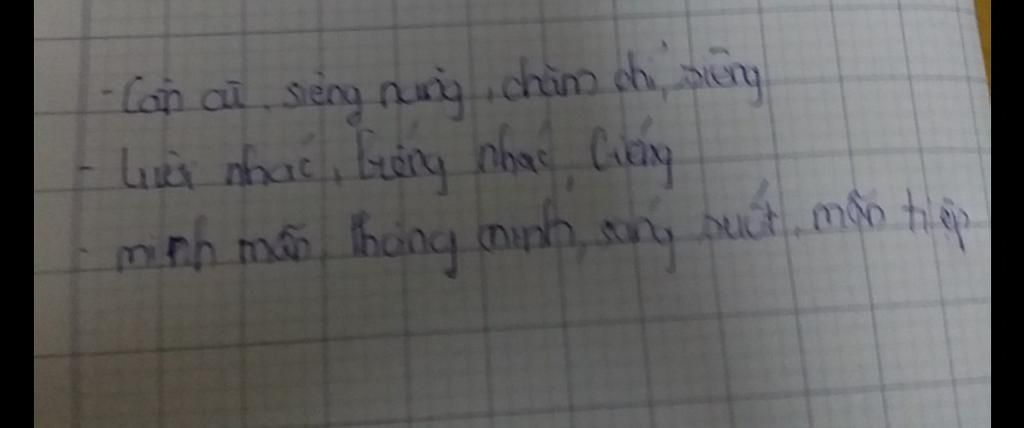 - Cần cù, siêng năng, chăm chỉ, siêng
- Lười nhác, biếng nhác, biếng
- minh mẫn, thông minh, sáng suốt, mẫn tiệp